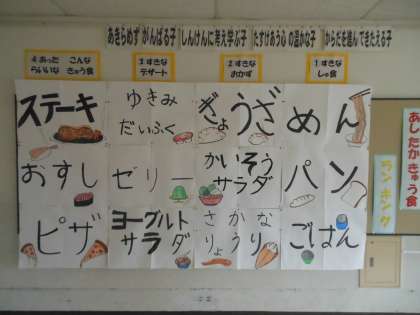 あきらめず がんばる子 しんけんに考え学ぶ子 たすけあう心の温かな子 からだを進んできたえる子
4あったらいいな こんなきゅう食
3すきな
デザート
2すきな
おかず
1すきな
しゅ食
ステーキ
おすし
ピザ
ゆきみ
だいふく
ゼリー
ヨーグルト
サラダ
ぎょうざ
かいそう
サラダ
さかな
りょうり
めん
パン
ごはん
あしたかきゅう食
ランキング